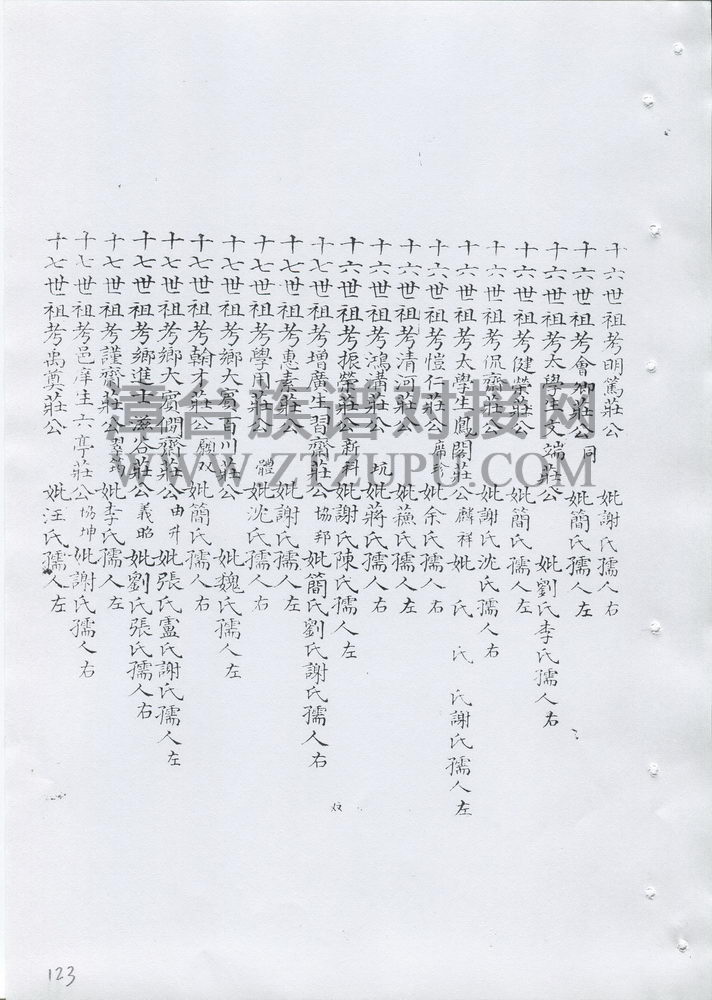 十六世祖考明篤莊公 妣謝氏孺人右
十六世祖考會卿莊公同 妣簡氏孺人左
十六世祖考太學生文端莊公 妣劉氏李氏孺人右
十六世祖考健榮莊公 妣簡氏孺人左
十六世祖考侃齋莊公 妣謝氏沈氏孺人右
十六世祖考太學生鳳閣莊公麟祥 妣 氏 氏 氏謝氏孺人左
十六世祖考愷仁莊公席珍 妣余氏孺人右
十六世祖考清河莊公 妣蘓氏孺人左
十六世祖考鴻溝莊公 坑 妣蔣氏孺人右
十六世祖考振榮莊公新科 妣謝氏陳氏孺人左
十七世祖考增廣生習齋莊公協邦 妣簡氏劉氏謝氏孺人右
十七世祖考惠素莊公 妣謝氏孺人左
十七世祖考學用莊公 體 妣沈氏孺人右
十七世祖考鄉大賓百川莊公 妣魏氏孺人左
十七世祖考翰才莊公 妣簡氏孺人右
十七世祖考鄉大賓侗齋莊公由升 妣張氏盧氏謝氏孺人左
十七世祖考鄉進士滋谷莊公義昭 妣劉氏張氏孺人右
十七世祖考謹齋莊公 妣李氏孺人左
十七世祖考邑庠生六亭莊公協坤 妣謝氏孺人右
十七世祖考禹奠莊公 妣汪氏孺人左
台族谱对接网
WWW.ZTZUPU.COM
123